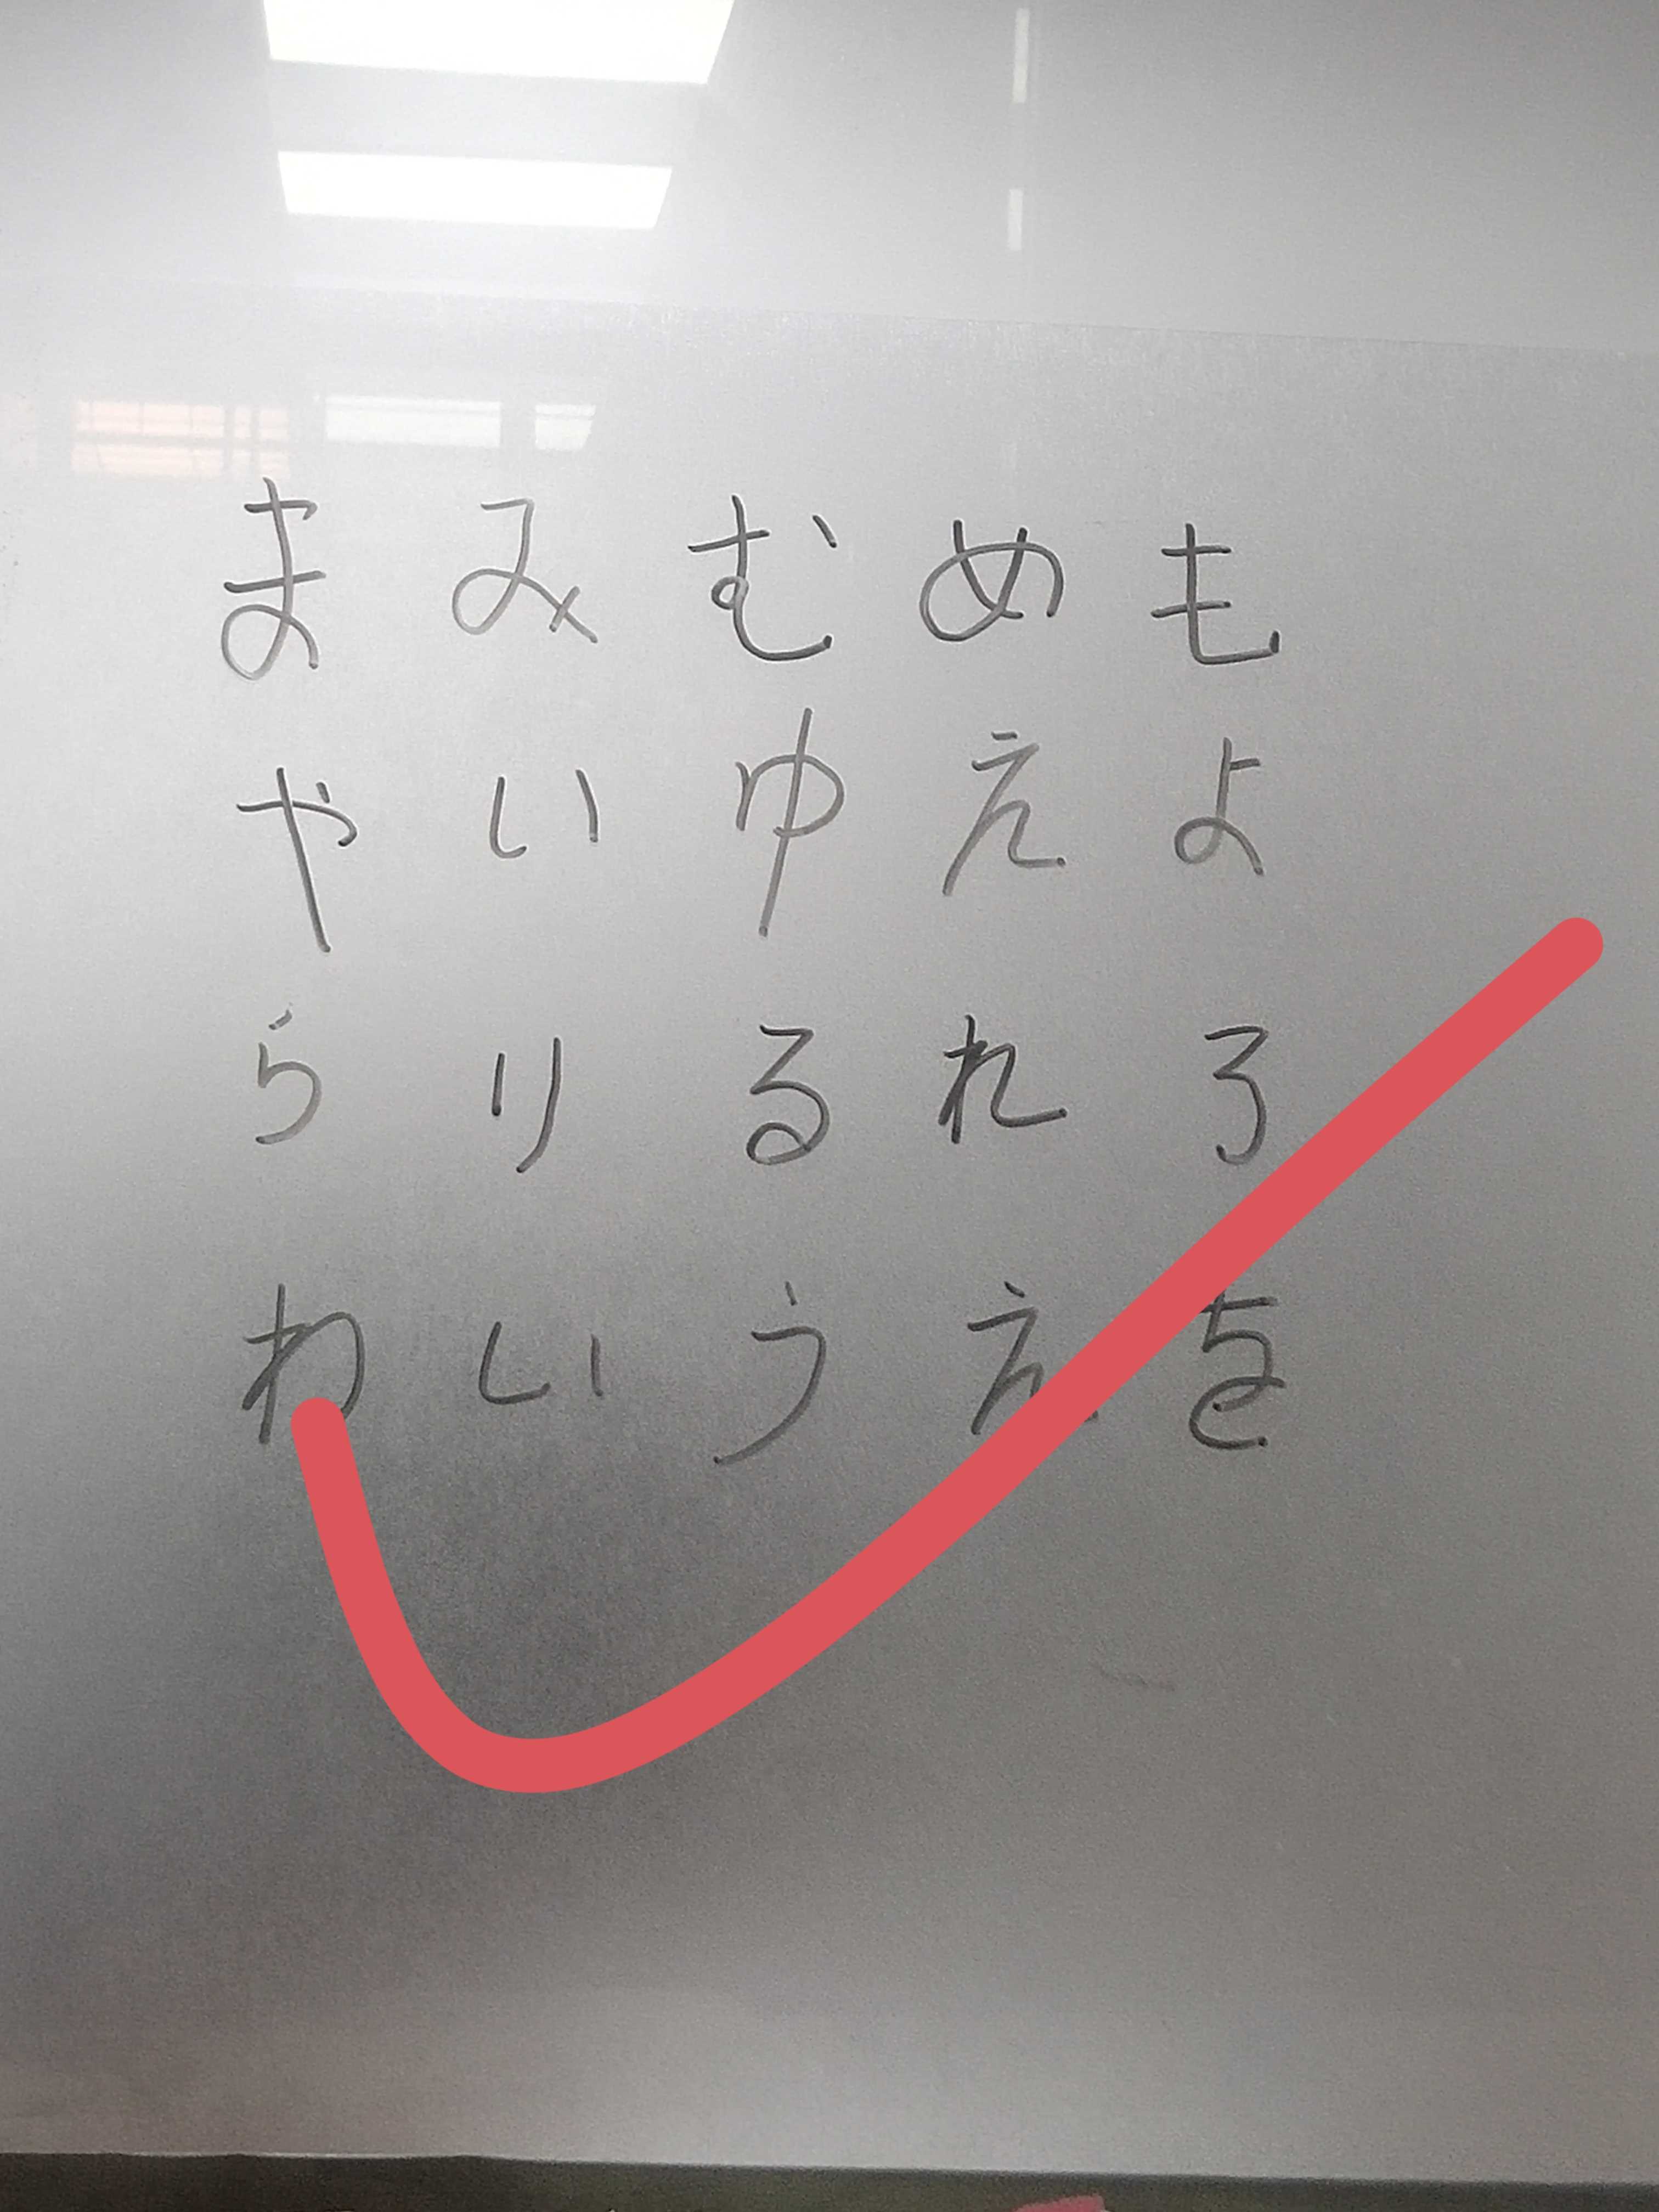 ま み む め も
や い ゆ え よ
ら り る れ ろ
わ い う え を